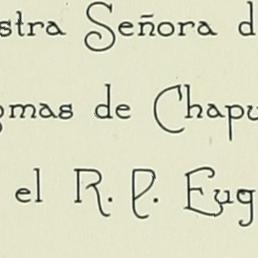 stra Señora d
omas de Chapu
el R. P. Eug